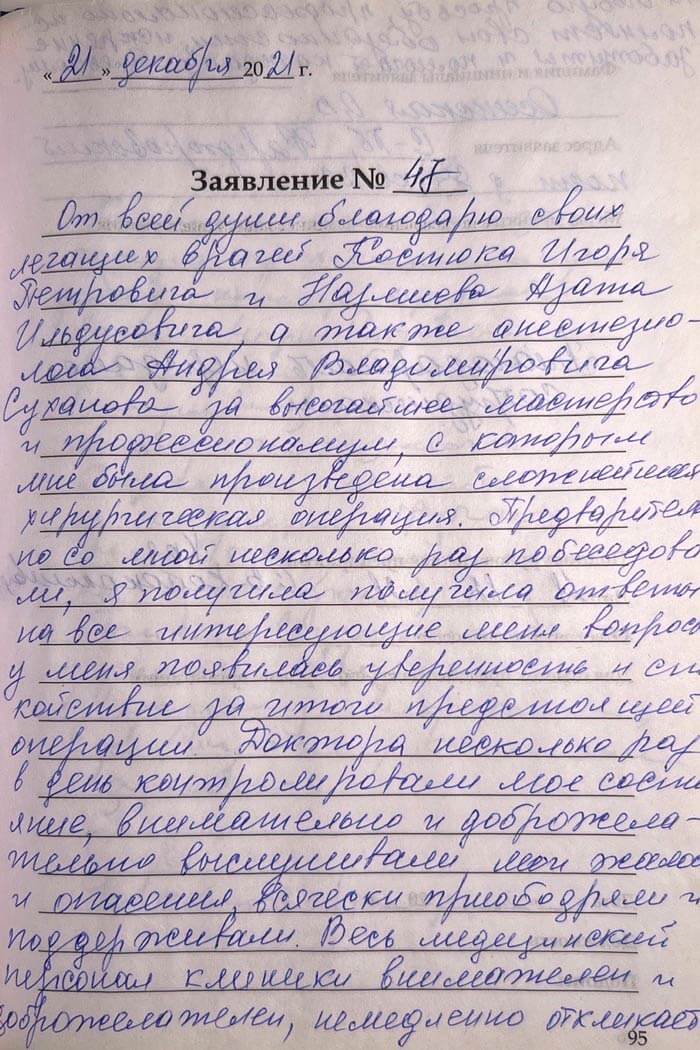 « 21 » декабря 2021 г.
Заявление № 47
От всей души благодарю своих
лечащих врачей Костюка Игоря
Петровича и Назмиева Азата
Ильдусовича, а также анестезио-
лога Андрея Владимировича
Суханова за высочайшее мастерство
и профессионализм, с которым
мне была произведена сложнейшая
хирургическая операция. Предварител
но со мной несколько раз побеседова
ли, я получила получила ответы
на все интересующие меня вопрос
у меня появилась уверенность и сп
койствие за итоги предстоящей
операции. Доктора несколько раз
в день контролировали мое состо
яние, внимательно и доброжела-
тельно выслушивали мои жало
и опасения, всячески приободряли и
поддерживали. Весь медецинский
персонал клиники внимателен и
доброжелателен, немедленно откликает
95